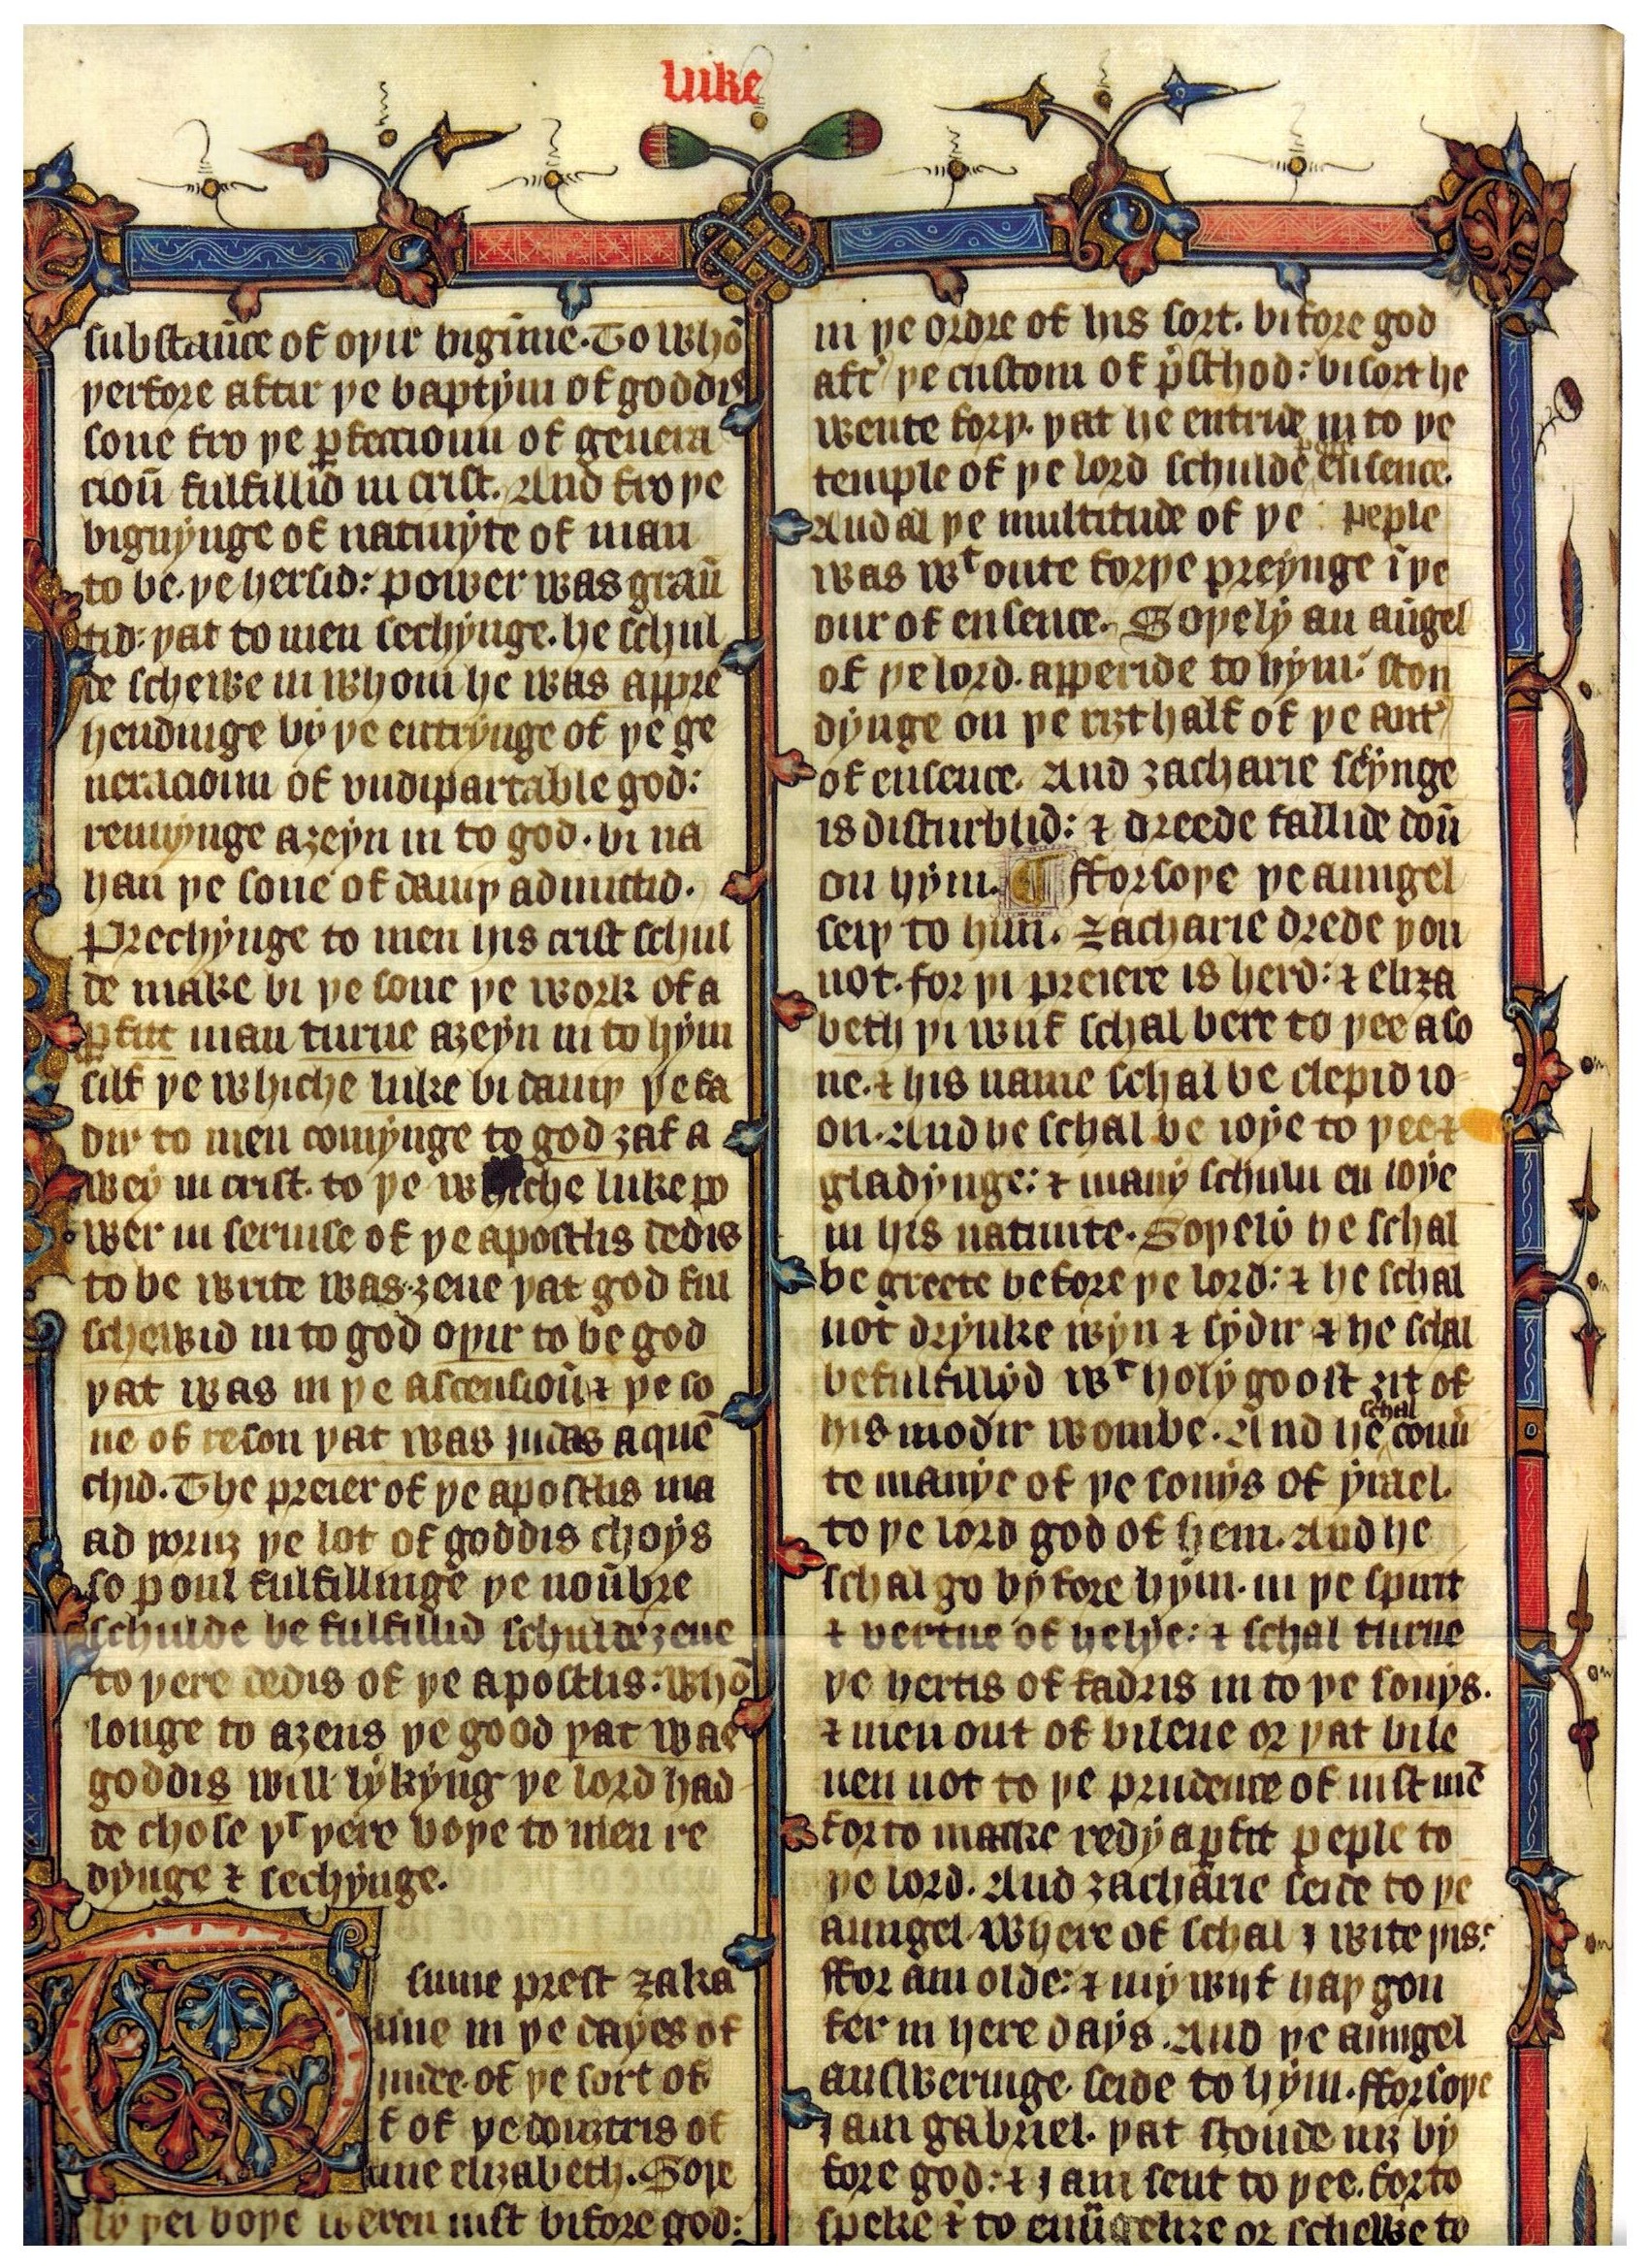 luke
substaūce of oþir bigīnīg. To whō
þerfore aftir þe baptẏm of goddis
sone fro þe ꝑfeccioun of genera
cioū fulfillid in crist. And fro þe
bigynẏnge of natiuyte of man
to be. þe hersid: power was graū
tid: þat to men sechẏnge. he schul
de schewe in whom he was appre
hendinge bẏ þe entrẏnge of þe ge
neracioun of vndipartable god:
rennẏnge aȝeẏn in to god. bi na
than þe sone of dauiþ admittid.
Prechẏnge to men his crist schul
de make bi þe sone þe work of a
ꝑfitt man turne aȝeẏn in to hẏm
silf þe whiche luke bi dauiþ þe fa
dir to men comẏnge to god ȝaf a
weẏ in crist. to þe whiche luke po
wer in seruise of þe apostlis dedis
to be write was ȝeue þat god ful
schewid in to god oþir to be god
þat was in þe ascensioū ⁊ þe so
ne of reson þat was judas aquē
chid. The preier of þe apostlis ma
ad þoruȝ þe lot of goddis choẏs
so poul fulfillinge þe noūbre
schulde be fulfillid schulde ȝeue
to þere dedis of þe apostlis: Whō
longe to aȝens þe good þat was
goddis will lẏkẏng þe lord had
de chose þt þere boþe to men re
dẏnge ⁊ sechẏnge.
sume prest ȝaka
nne in þe daẏes of
iudee. of þe sort of
t of þe douȝtris of
ame elizabeth. Soþe
lẏ þei boþe weren iust bifore god:
in þe ordre of his sort. bifore god
aft' þe custom of p̄sthod: bi sort he
wente forþ. þat he entride in to þe
temple of þe lord schulde putt ensence.
And al þe multitude of þe peple
was wt oute forþe preẏnge ī þe
our of ensence. Soþelẏ an aūgel
of þe lord. apperide to hẏm: ston
dẏnge on þe riȝt half of þe aut'
of ensence. And ȝacharie seẏnge
is disturblid: ⁊ dreede fallide doū
on hẏm. fforsoþe þe aungel
seiþ to him. Zacharie drede þou
not. for þi preiere is herd: ⁊ eliza
beth þi wiif schal bere to þee a so
ne. ⁊ his name schal be clepid io
on. And he schal be ioẏe to þee ⁊
gladẏnge: ⁊ manẏ schuln en ioẏe
in his natiuite. Soþelẏ he schal
be greete before þe lord: ⁊ he schal
not drẏnke wẏn ⁊ sẏdir ⁊ he schal
be fulfillẏd wt holẏ goost ȝit of
his modir wombe. And he schal conū
te manẏe of þe sonẏs of ẏrael.
to þe lord god of hem. And he
schal go bẏfore hẏm. in þe spirit
⁊ vertue of helẏe: ⁊ schal turne
þe hertis of fadris in to þe sonẏs.
⁊ men out of bileue or þat bile
uen not to þe prudence of iust mē
for to maake redẏ a ꝑfitt peple to
þe lord. And zacharie seide to þe
aungel. Where of schal j wite þis:
ffor am olde: ⁊ mẏ wiif haþ gon
fer in here daẏs. And þe aungel
answeringe. seide to hẏm. fforsoþe
j am gabriel. þat stonde niȝ bẏ
fore god: ⁊ j am sent to þee. for to
speke ⁊ to euūgelize or schewe to